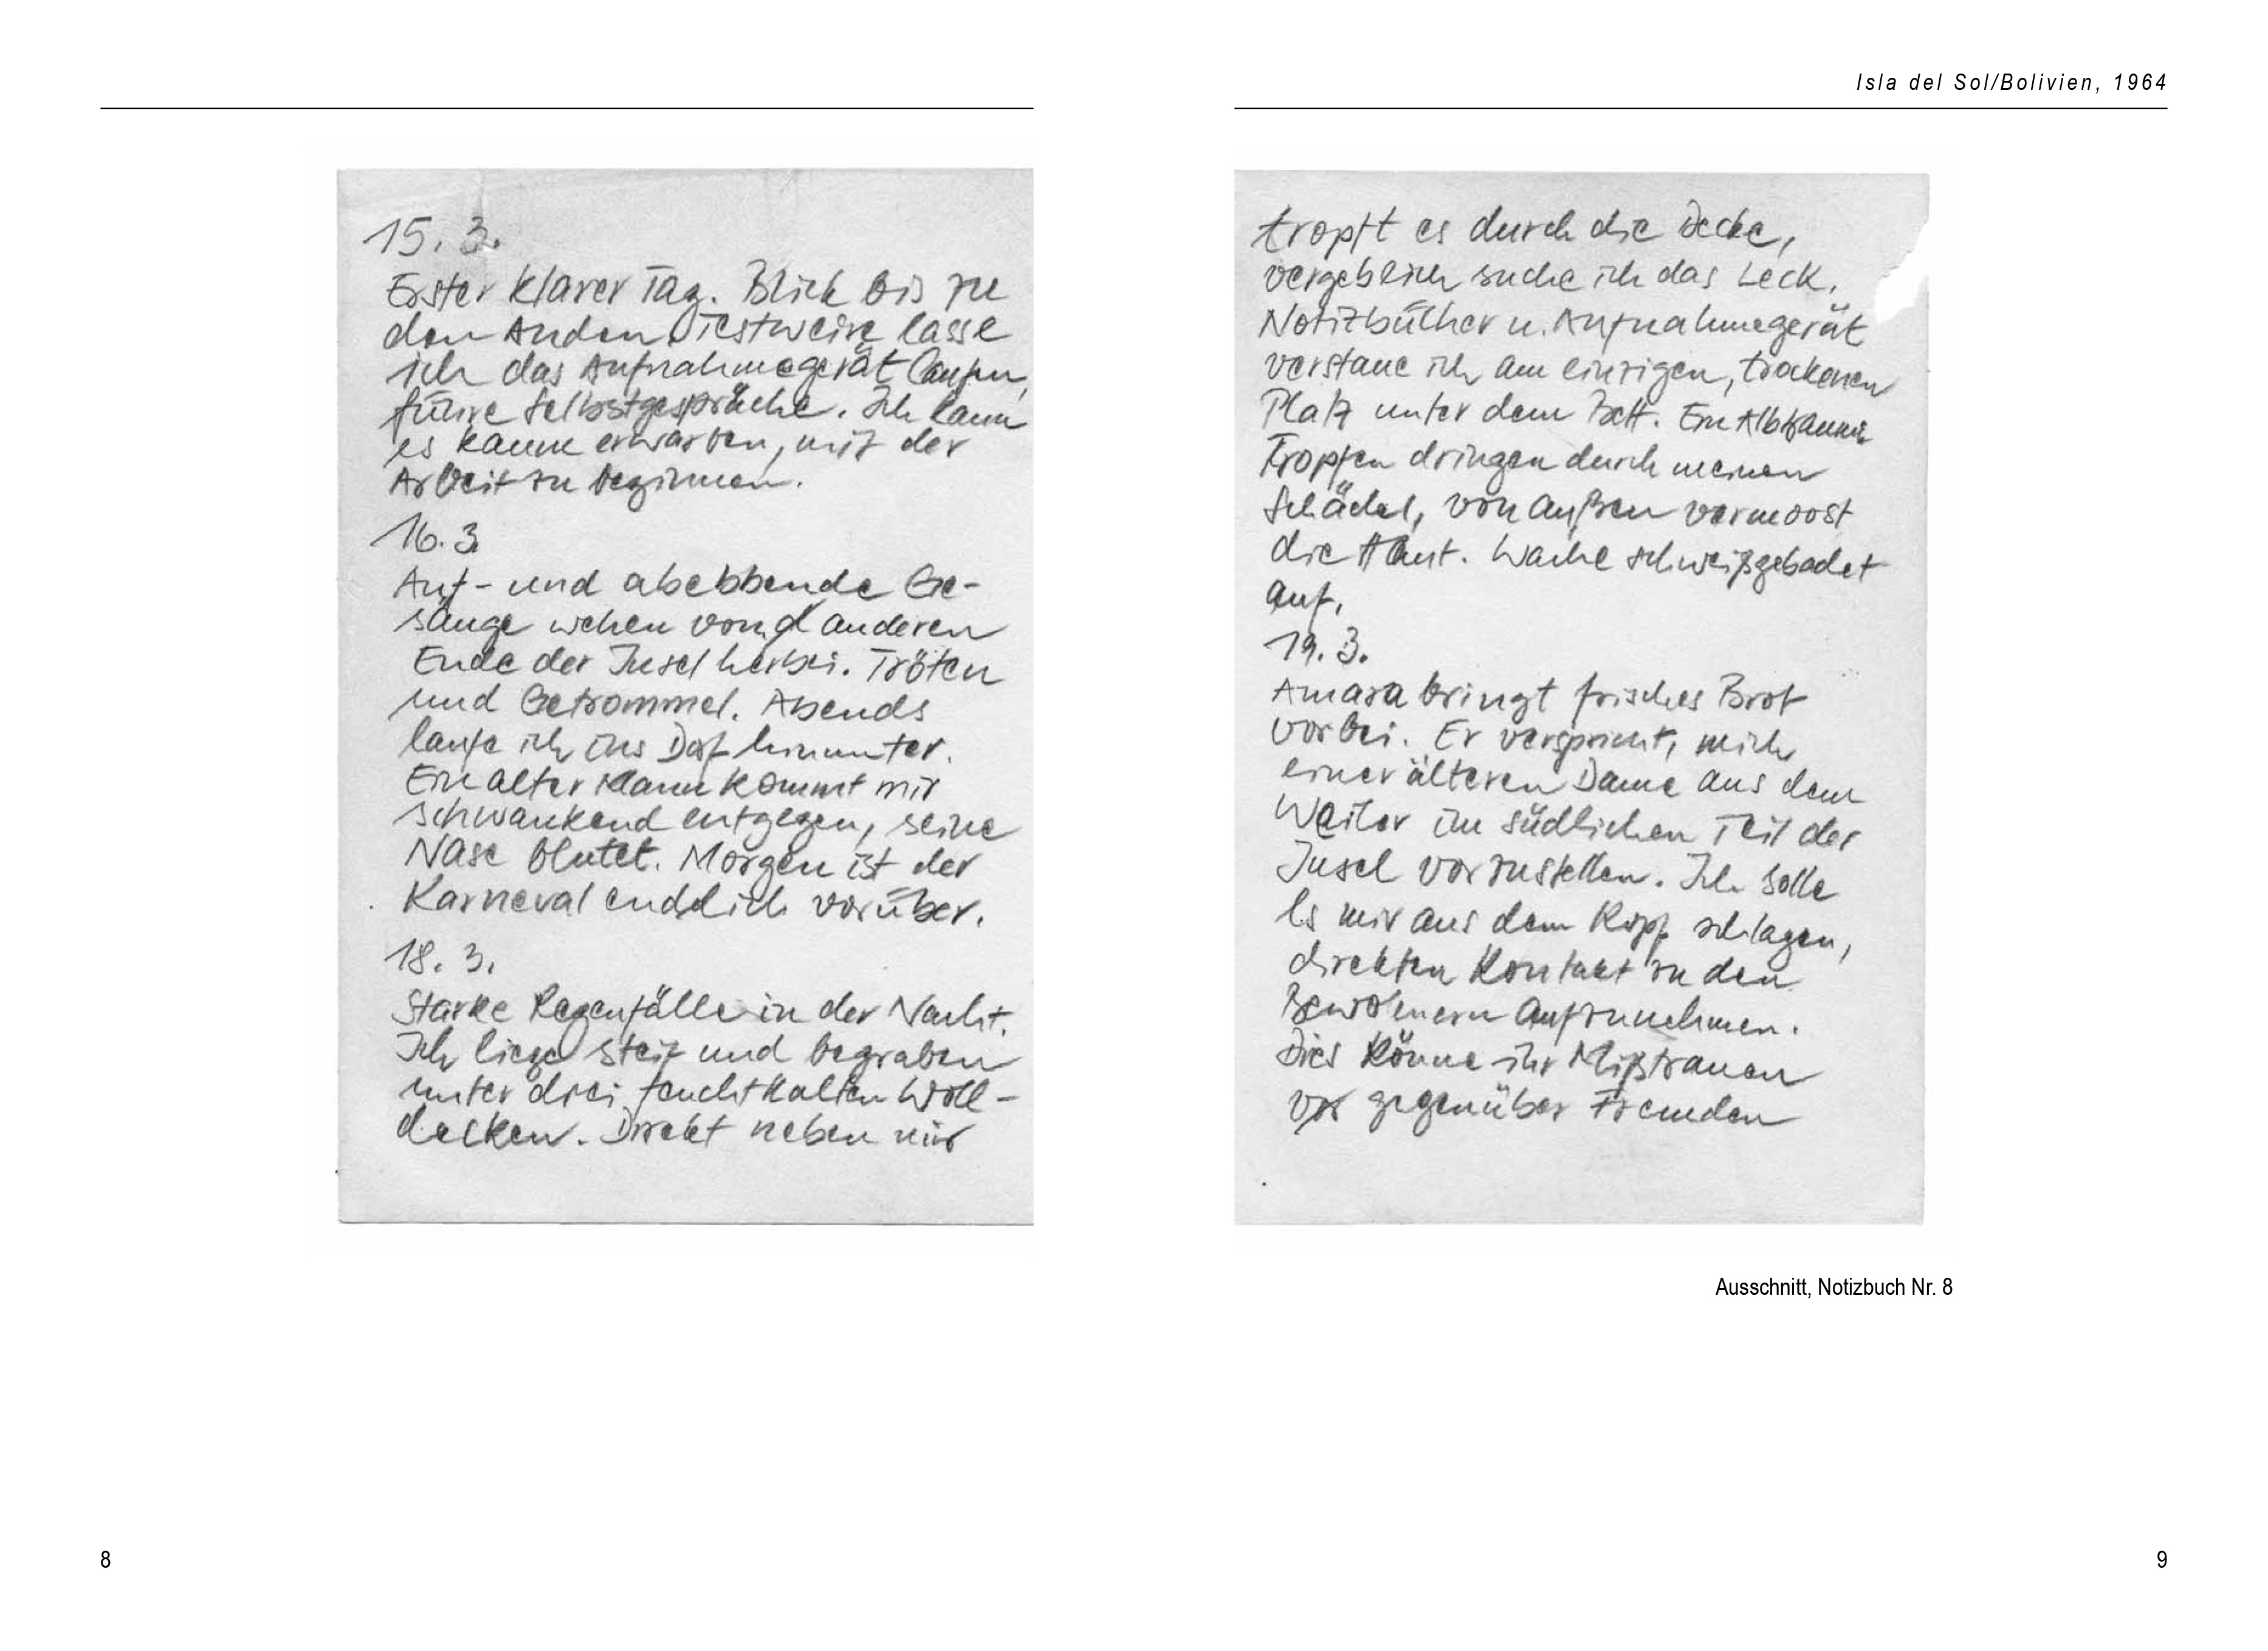 15. 3.
Erster klarer Tag. Blick bis zu
den Anden. Testweise lasse
ich das Aufnahmegerät laufen,
führe Selbstgespräche. Ich kann
es kaum erwarten, mit der
Arbeit zu beginnen.
16. 3.
Auf- und abebbende Ge-
sänge wehen von d anderen
Ende der Insel herbei. Tröten
und Getrommel. Abends
laufe ich ins Dorf hinunter.
Ein alter Mann kommt mir
schwankend entgegen, seine
Nase blutet. Morgen ist der
Karneval endlich vorüber.
18. 3.
Starke Regenfälle in der Nacht.
Ich liege steif und begraben
unter drei feuchtkalten Woll-
decken. Direkt neben mir
8
Isla del Sol/Bolivien, 1964
tropft es durch die Decke,
vergeblich suche ich das Leck.
Notizbücher u. Aufnahmegerät
verstaue ich am einzigen, trockenen
Platz unter dem Bett. Ein Albtraum:
Tropfen dringen durch meinen
Schädel, von außen vermoost
die Haut. Wache schweißgebadet
auf.
19. 3.
Amara bringt frisches Brot
vorbei. Er verspricht, mich
einer älteren Dame aus dem
Weiler im südlichen Teil der
Insel vorzustellen. Ich solle
es mir aus dem Kopf schlagen,
direkten Kontakt zu den
Bewohnern aufzunehmen.
Dies könne ihr Mißtrauen
gegenüber Fremden
Ausschnitt, Notizbuch Nr. 8
9